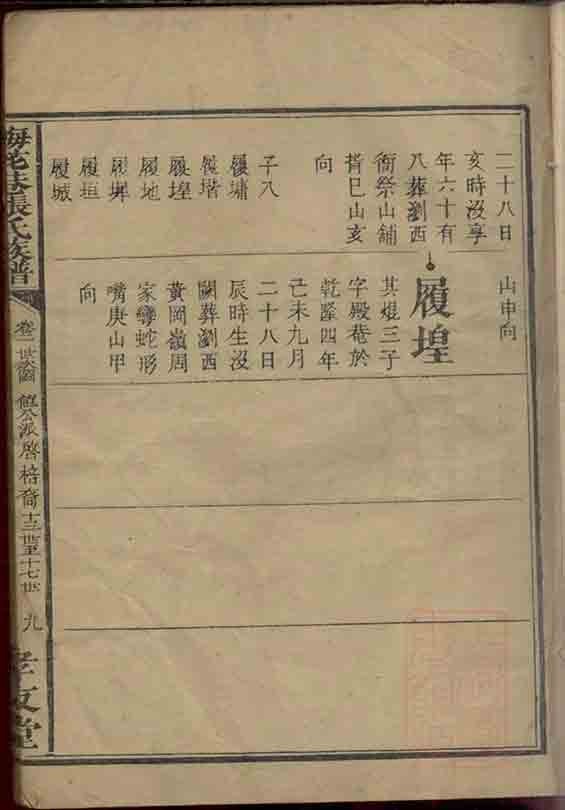 二十八日
亥時沒享
年六十有
八葬瀏西
衙祭山舖
揹巳山亥
向
子八
履墉
履堦
履埕
履地
履墀
履垣
履城
山申向
履埕
其焜三子
字殿巷於
乾隆四年
己未九月
二十八日
辰時生沒
闕葬瀏西
黃岡嶺周
家彎蛇形
嘴庚山甲
向
張氏族譜
卷一世次圖 公派啓梧裔十三世至十七世 九
孝友堂